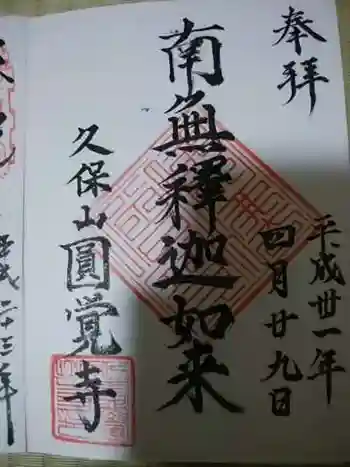 奉拝
平成卅一年
四月廿九日
南無釋迦如来
久保山
圓覚寺
平成二十三年